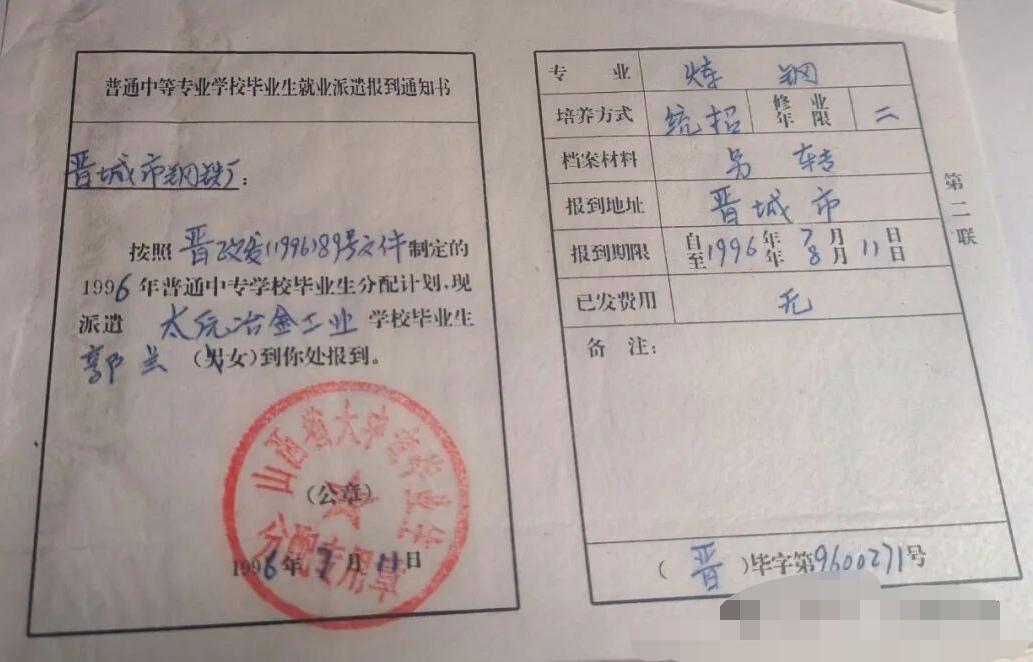 普通中等专业学校毕业生就业派遣报到通知书
晋城市钢铁厂:
按照晋政发(1996)89号文件制定的
1996年普通中专学校毕业生分配计划,现
派遣 太原冶金工业 学校毕业生
郭兰 (男女)到你处报到。
山西省大中专毕业生
(公章)
分配专用章
1996年7月11日
专业 炼钢
培养方式 统招 修业年限 二
档案材料 另转
报到地址 晋城市
报到期限 自至1996年年7月8月11日日
已发费用 无
备注:
(晋)毕字第9600271号
第二联